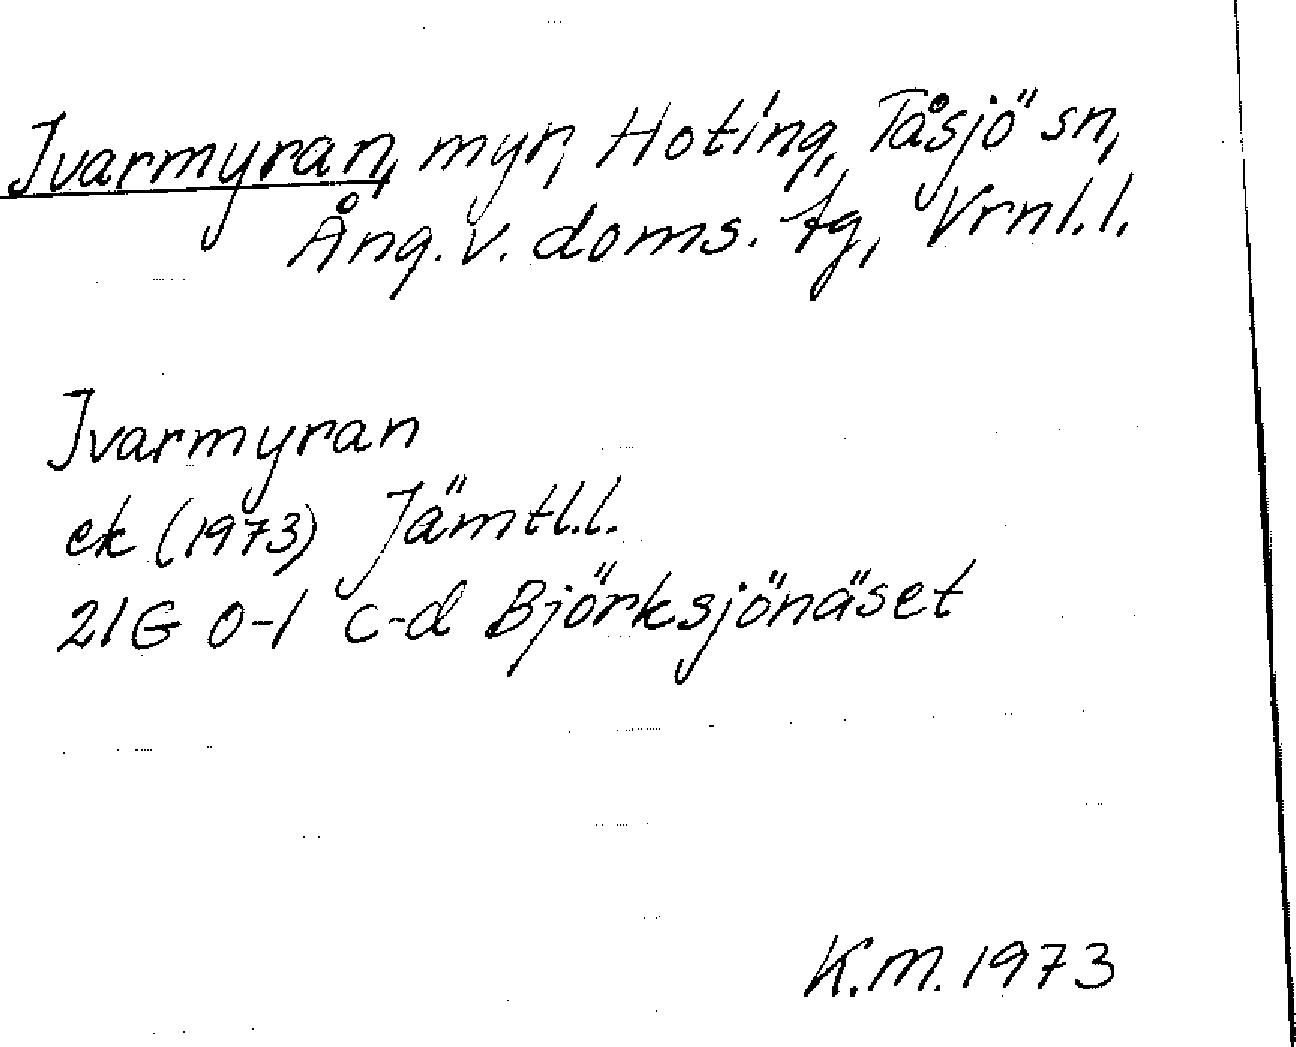 Ivarmyran, myr, Hoting, Tåsjö sn,
Ång. v. doms. tg, Vrnl.l.
Ivarmyran
ek (1973) Jämtl.l.
21G 0-1 c-d Björksjönäset
K.M. 1973